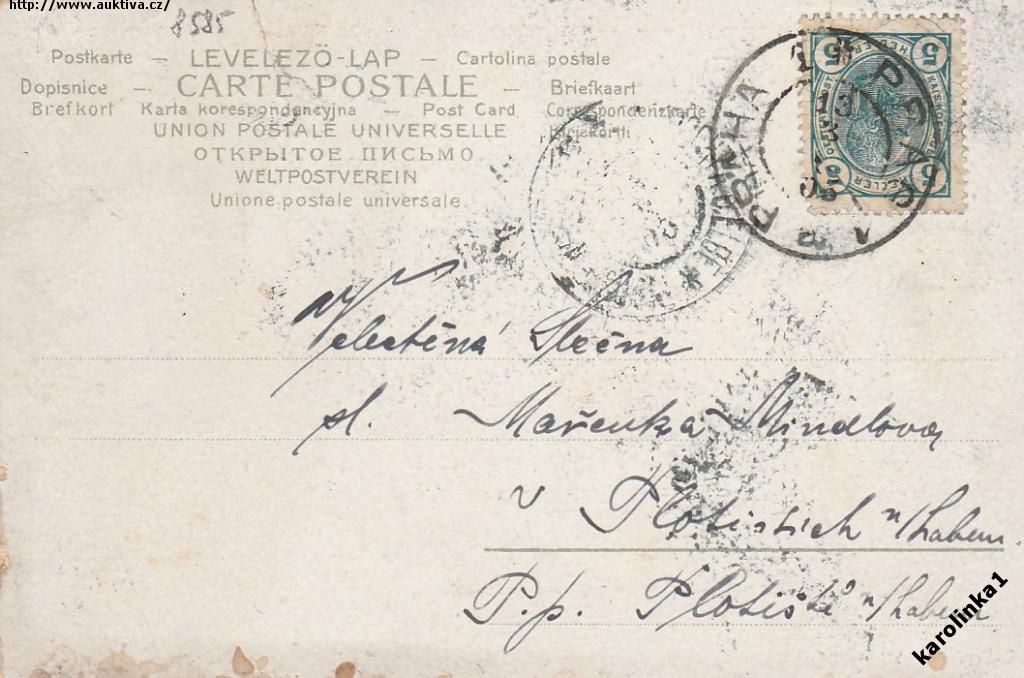 http://www.auktiva.cz/
8585
Postkarte – LEVELEZŐ-LAP – Cartolina postale
Dopisnice – CARTE POSTALE – Briefkaart
Brefkort – Karta korespondencyjna – Post Card – Correspondenzkarte
UNION POSTALE UNIVERSELLE
ОТКРЫТОЕ ПИСЬМО
WELTPOSTVEREIN
Unione postale universale.
5 5
HELLER
5 5
PRAHA
PRAG
13
05
Velectěná Slečna
sl. Mařenka Mindlova
v Plotistích n/Labem
P.p. Plotiště n/Labem
karolinka1